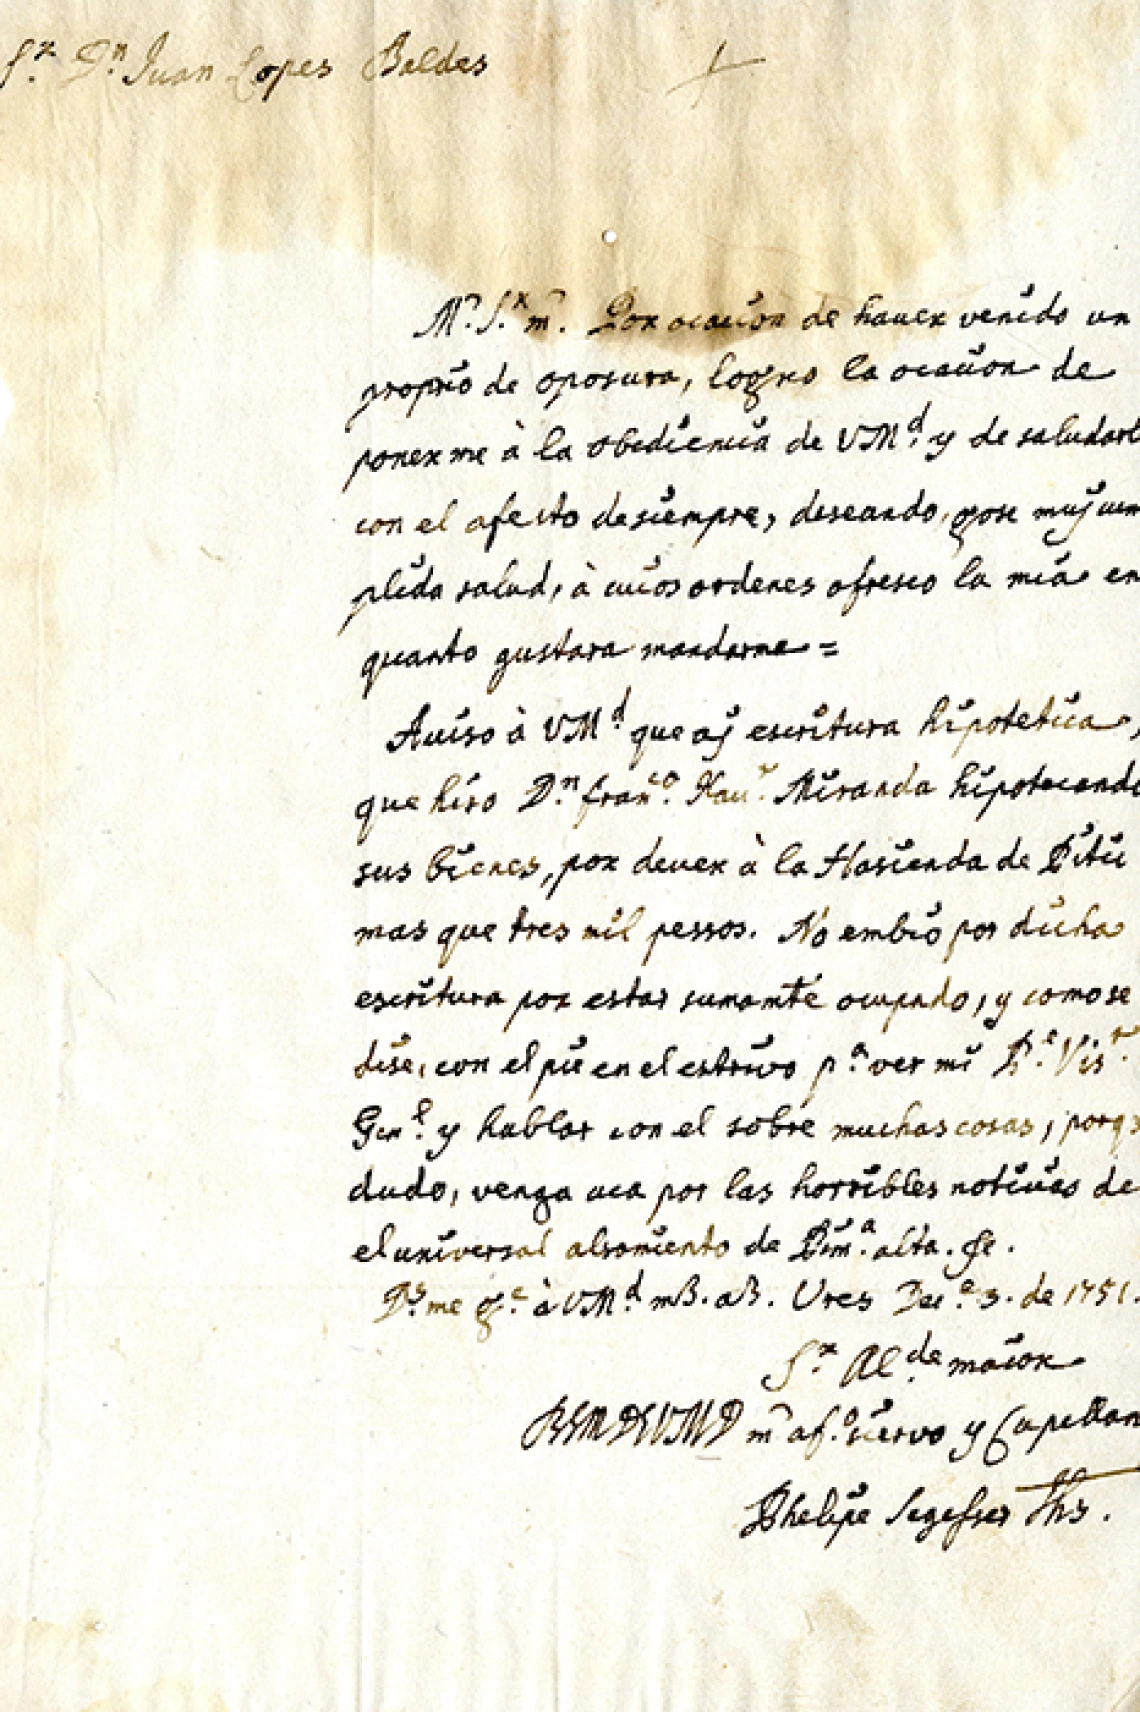 Sr. Dn. Juan Lopes Baldes
Mui Sr. m. Por ocacion de hauer venido un
proprio de oposura, logro la ocacion de
ponerme à la obediencia de VMd. y de saludarl
con el afecto de siempre, deseando, gose muj cum
plida salud, à cuios ordenes ofresco la mia en
quanto gustara mandarme =
Auiso à VMd. que aj escritura hipotetica,
que hiso Dn. franco. Xaur. Miranda hipotecando
sus bienes, por deuer à la Hasienda de Pitic
mas que tres mil pessos. No embio por dicha
escritura por estar sumamte ocupado, y como se
dise, con el pie en el estrivo pa. ver mi Pe. Visr.
Genl. y hablar con el sobre muchas cosas, porq
dudo, venga aca por las horribles noticias de
el universal alsamiento de Pima. alta. &c.
Ds. me ge. à VMd. m B. a B. Ures Dece. 3. de 1751.
Sr. Alde. maior
BLM DE VMD m afo. siervo y Capellan
Phelipe Segesser Jhs.